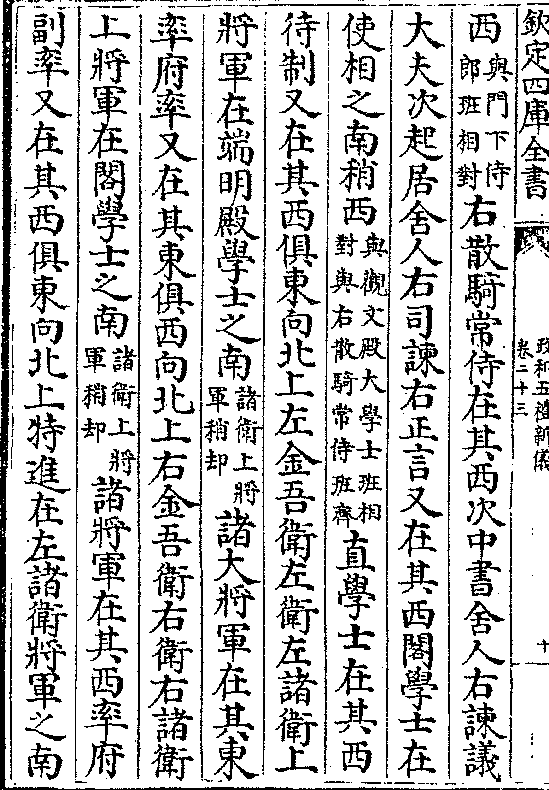 欽定四庫全書
政和五禮新儀
卷二十三
十
西與門下侍郎班相對右散騎常侍在其西次中書舍人右諫議
大夫次起居舍人右司諫右正言又在其西閣學士在
使相之南稍西與觀文殿大學士班相對與右散騎常侍班齊直學士在其西
待制又在其西俱東向北上左金吾衛左衛左諸衛上
將軍在端明殿學士之南諸衛上將軍稍却諸大將軍在其東
率府率又在其東俱西向北上右金吾衛右衛右諸衛
上將軍在閣學士之南諸衛上將軍稍却諸將軍在其西率府
副率又在其西俱東向北上特進在左諸衛將軍之南